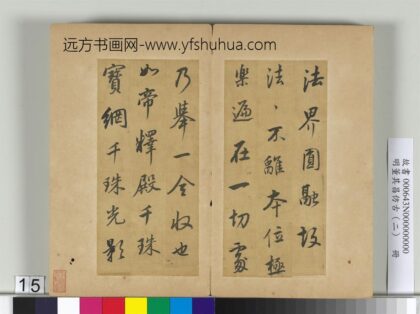 远方书画网-www.yfshuhua.com
法界圓融故
法法不離本位極
樂遍在一切處
乃舉一全收也
如帝釋殿千珠
寶網千珠光影
故書 000643N000000000
明董其昌仿古（二） 冊
15